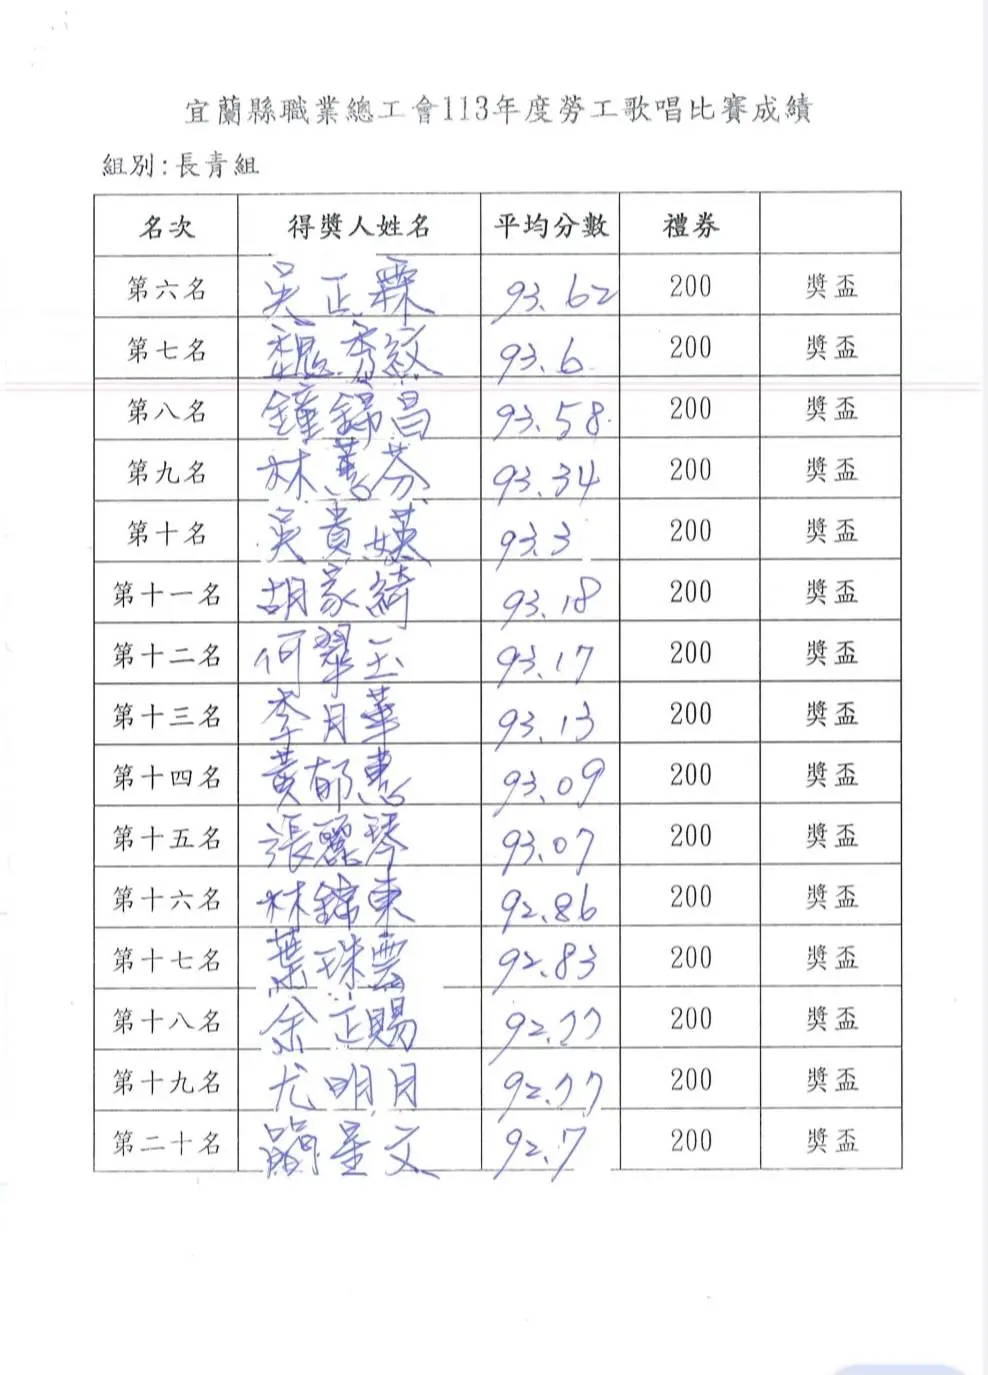 宜蘭縣職業總工會113年度勞工歌唱比賽成績
組別:長青組
名次 得獎人姓名 平均分數 禮券
第六名 吳正霖 93.62 200 獎盃
第七名 魏秀紋 93.6 200 獎盃
第八名 鐘錦昌 93.58 200 獎盃
第九名 林蕙芬 93.34 200 獎盃
第十名 吳貴媖 93.3 200 獎盃
第十一名 胡家綺 93.18 200 獎盃
第十二名 何翠玉 93.17 200 獎盃
第十三名 李月華 93.13 200 獎盃
第十四名 黃郁惠 93.09 200 獎盃
第十五名 張麗琴 93.07 200 獎盃
第十六名 林錦東 92.86 200 獎盃
第十七名 葉珠雲 92.83 200 獎盃
第十八名 余正賜 92.77 200 獎盃
第十九名 尤明月 92.77 200 獎盃
第二十名 簡星文 92.7 200 獎盃